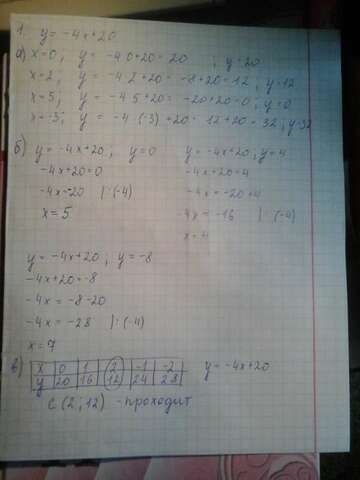 1. y = -4x+20
а) x=0; y = -4·0+20= 20 ; y=20
x=2; y = -4·2+20= -8+20=12; y=12
x=5; y = -4·5+20= -20+20=0; y=0
x=-3; y = -4·(-3)+20= 12+20=32; y=32
б) y = -4x+20; y=0
-4x+20=0
-4x=-20 |:(-4)
x=5
y=-4x+20; y=4
-4x+20=4
-4x = -20+4
-4x = -16 |:(-4)
x=4
y = -4x+20; y=-8
-4x+20=-8
-4x = -8-20
-4x = -28 |:(-4)
x=7
в) x 0 1 2 -1 -2 y = -4x+20
y 20 16 12 24 28
C (2; 12) - проходит